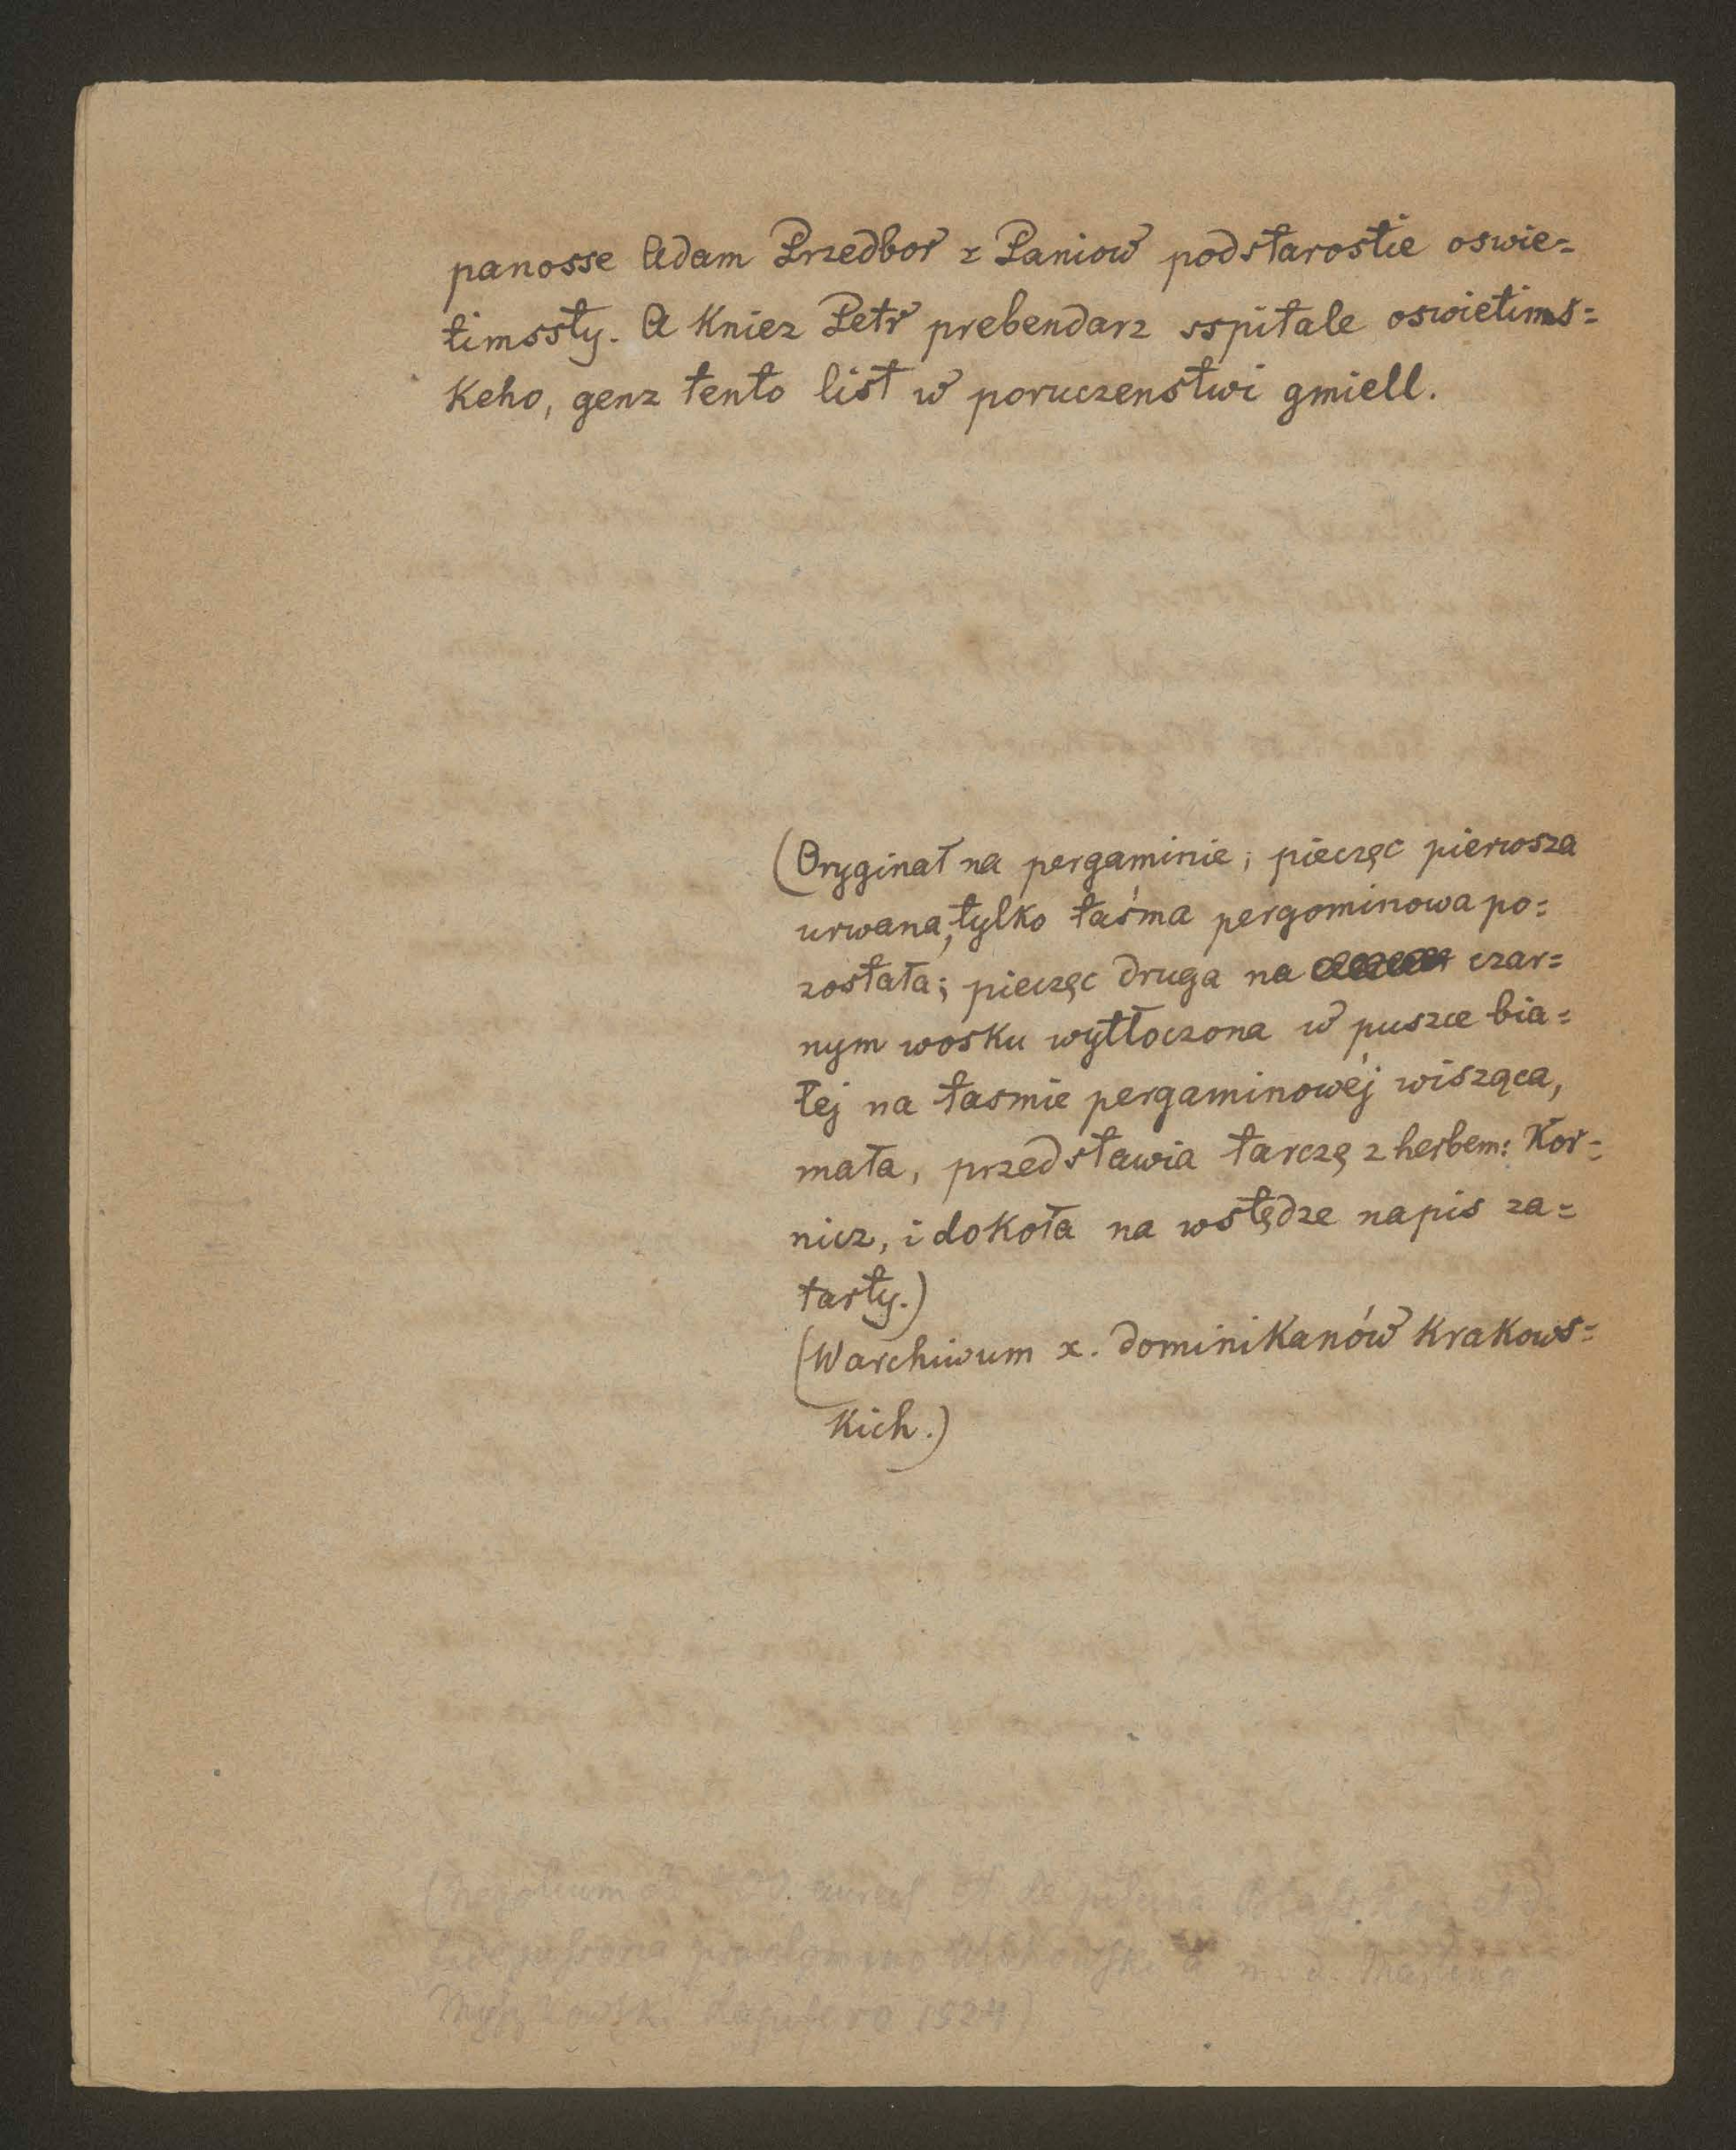 panosse Adam Przedbor z Paniow podstarostie oswie=
timssty. A Kniez Petr prebendarz sspitale oswietims=
keho, genz tento list w poruczenstwi gmiell.
(Oryginał na pergaminie; pieczęc pierwsza
urwana, tylko taśma pergominowa po=
została; pieczęc druga na czar=
nym wosku wytłoczona w puszce bia=
łej na tasmie pergaminowéj wisząca,
mała, przedstawia tarczę z herbem: Kor=
nicz, i dokoła na wstędze napis za=
tarty.)
(W archiwum x. dominikanów krakows=
kich.)